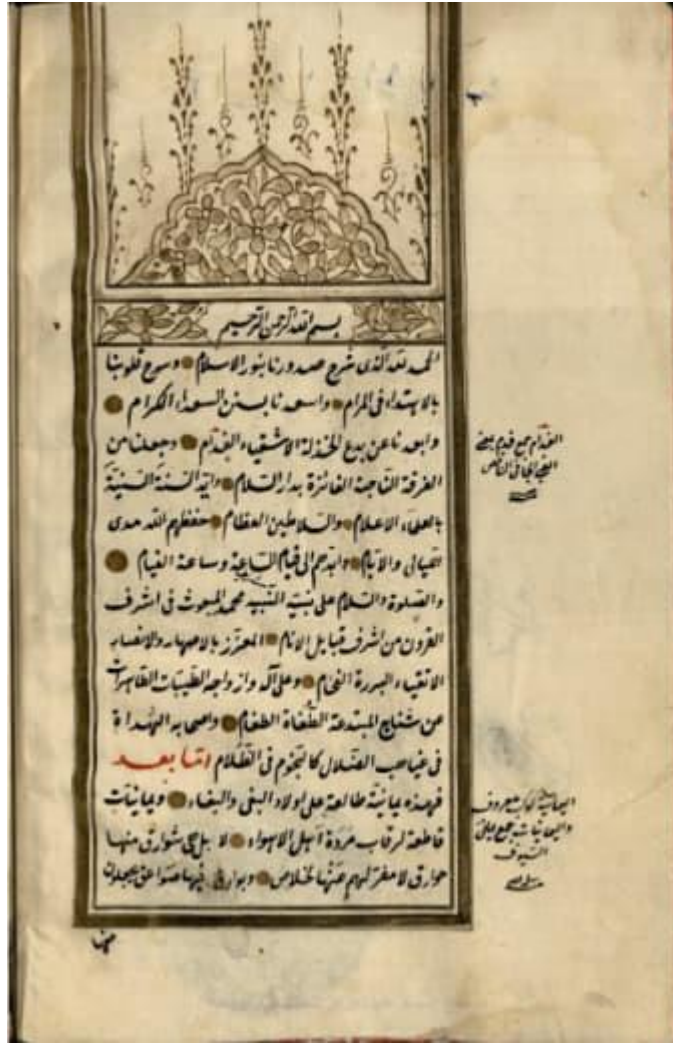 بسم الله الرحمن الرحيم
الحمد لله الذى شرح صدورنا بنور الاسلام وسرح قلوبنا
بالاهتداء فى المرام واسعدنا بسنن السعداء الكرام
وابعدنا عن بدع الخذلة الاشقياء الفدام وجعلنا من
الفرقة الناجية الفائزة بدار السلام وايد السنة السنية
بالعلماء الاعلام والسلاطين العظام حفظهم الله مدى
الليالى والايام وابدهم الى قيام الساعة وساعة القيام
والصلوة والسلام على نبيه النبيه محمد المبعوث فى اشرف
القرون من اشرف قبايل الانام المعزز بالاصهار والانصار
الاتقياء البررة الفخام وعلى آله وازواجه الطيبات الطاهرات
عن شنايع المبتدعة الطغاة الطغام واصحابه الهداة
فى غياهب الضلال كالنجوم فى الظلام اما بعد
فهذه يمانية طالعة على اولاد البغى والبغاء ويمانيات
قاطعة لرقاب مردة اهل الاهواء لا بل هى شوارق منها
حوارق لا مفر لهم عنها لخلاص وبوارق فيها صواعق
الفدام جمع فدم بمعنى
اليمانية كوكب معروف
واليمانيات جمع يمانى
السيوف